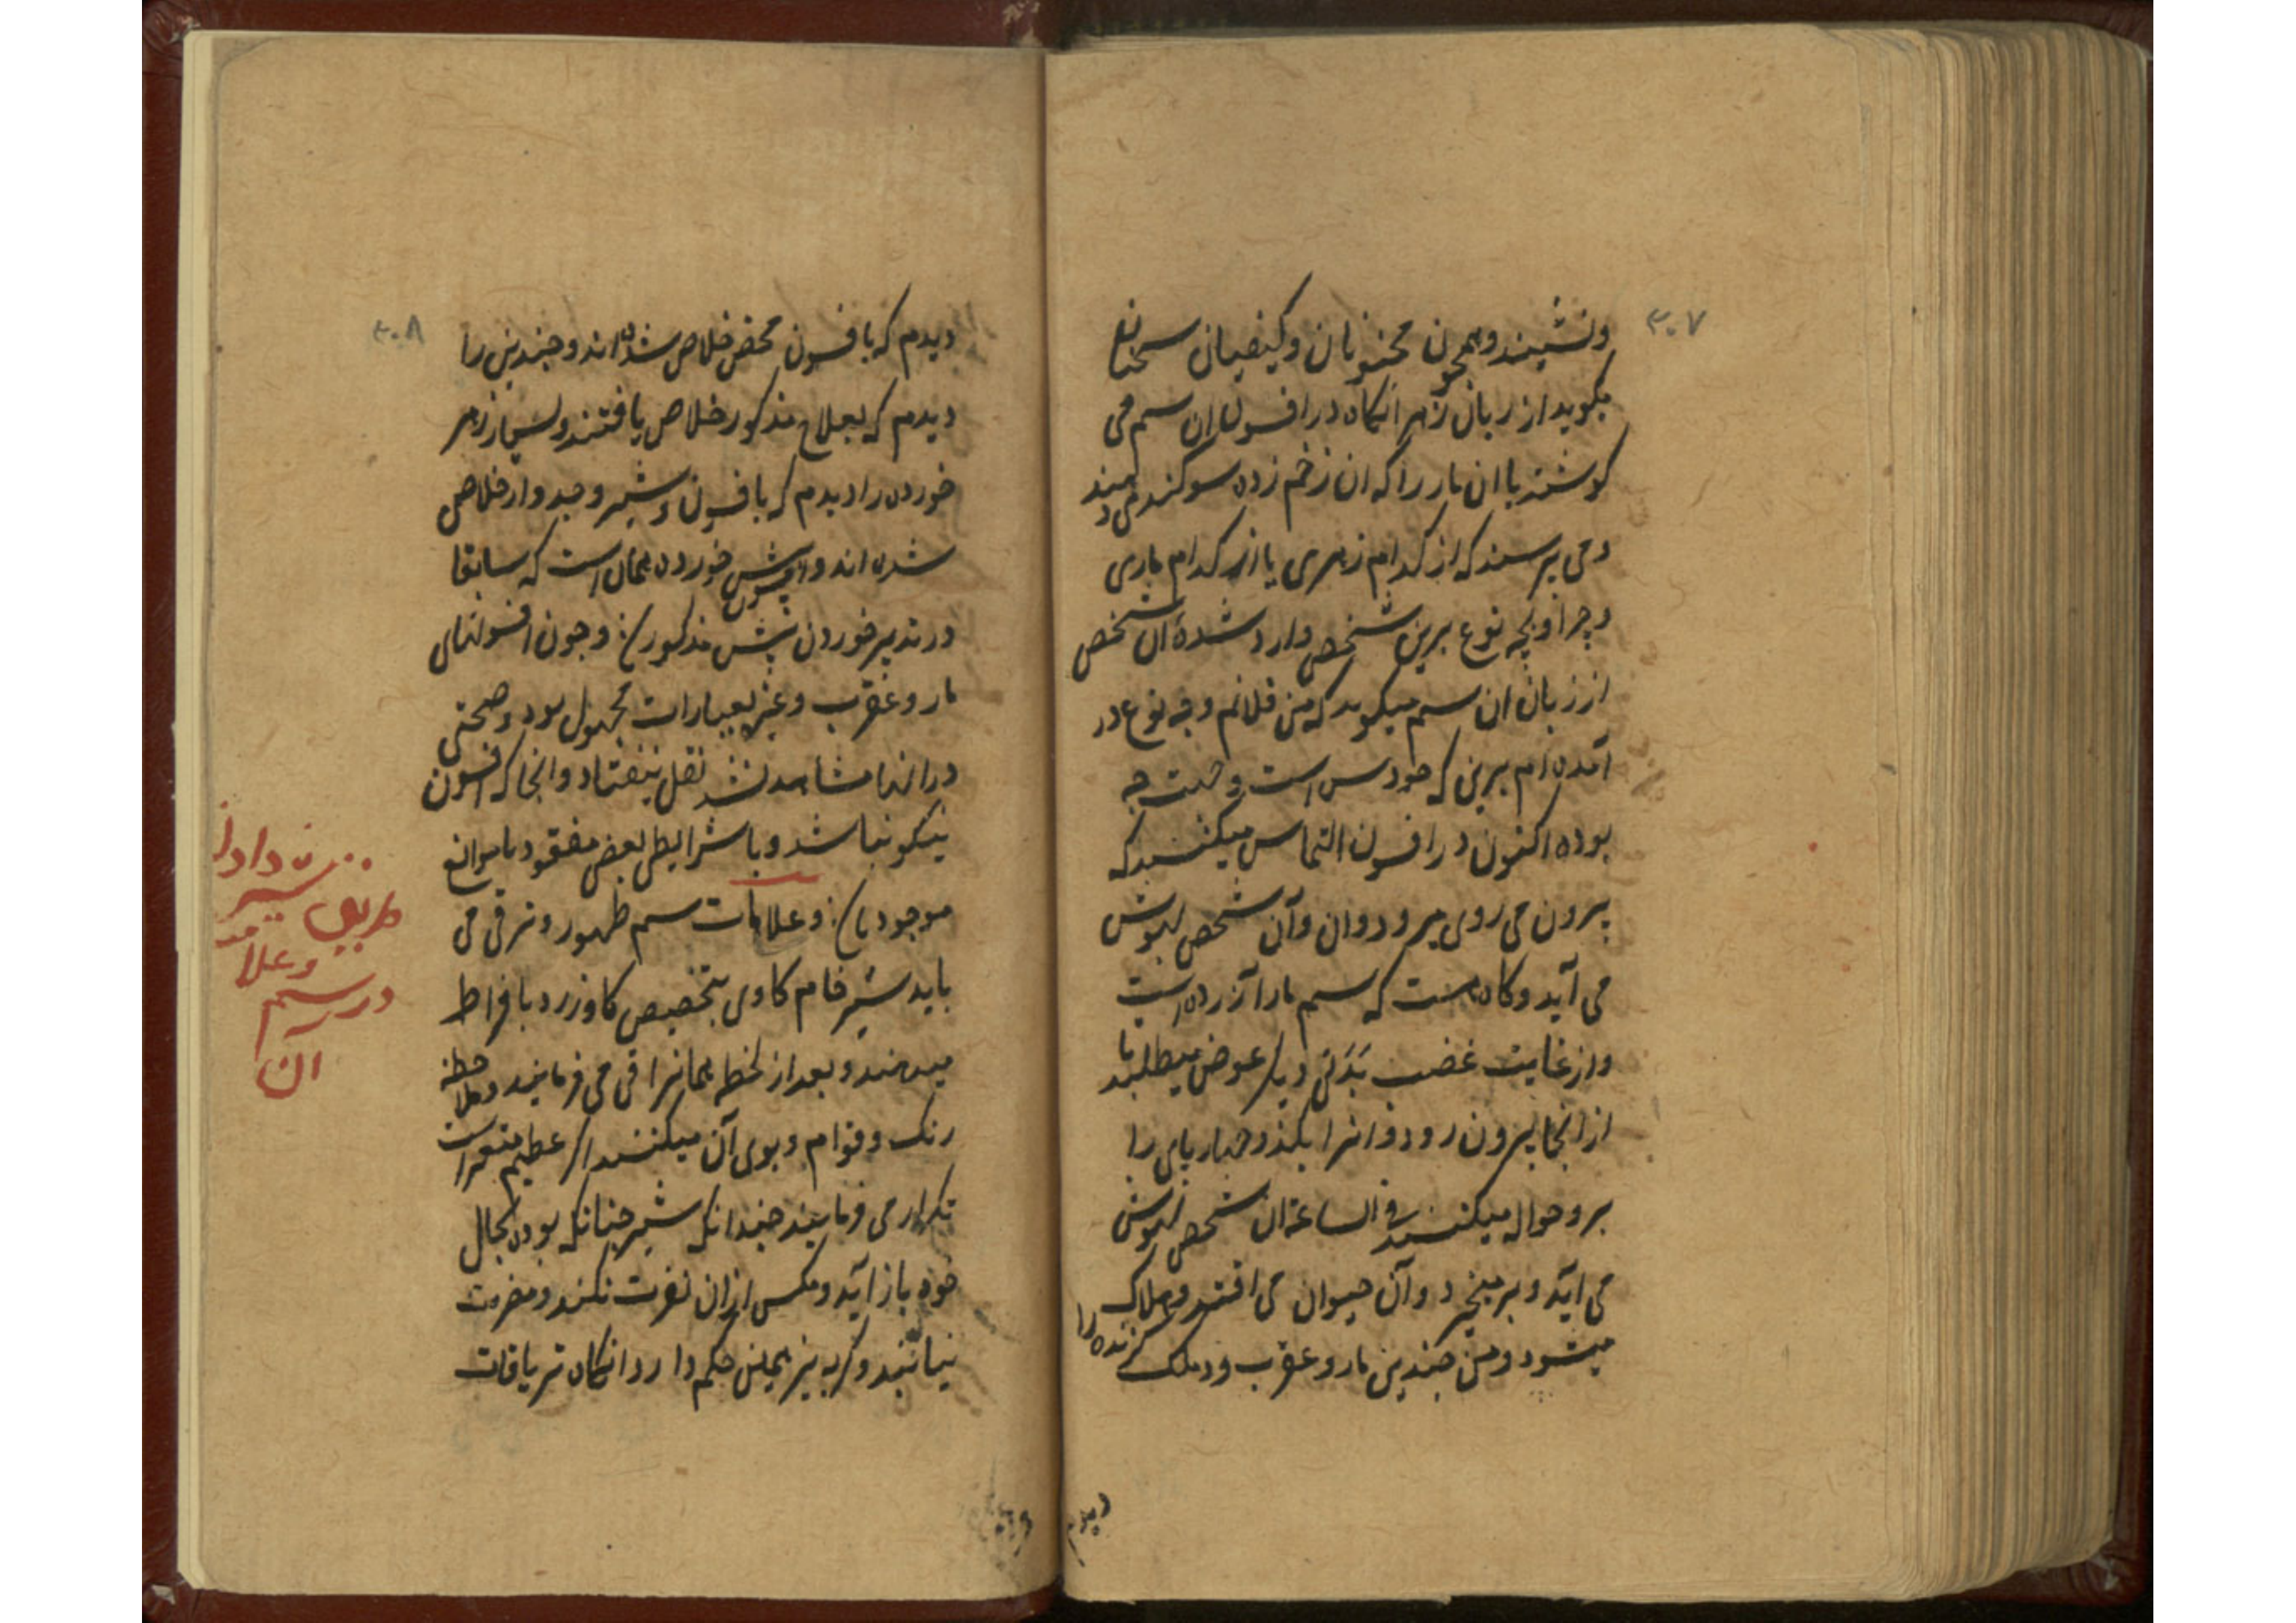 ۳۰۷
ونشیند و همچون مجنونان وکیفیان سخنان
بکوید از زبان زهر انکاه در افسون ان سم می
کوشند با ان مار را که ان زخم زده سوکند می دهند
و می پرسند که از کدام زهری یا از کدام ماری
و چرا و بچه نوع برین شخص وارد شدهٔ ان شخص
از زبان ان سم میکوید که من فلانم و به نوع در
آمده ام برین که خود سبب چه
بوده اکنون در افسون التماس میکنند که
بیرون می روی میرود وان وآن شخص بهوش
می آید و کاه هست که سم مارا آزرده است
و از غایت غضب بدنی دیگر عوض میطلبد تا
از انجا بیرون رود و انرا بکذرد چهارپای را
برو حواله میکنند فی الساعة ان شخص بهوش
می آید و برمیخیزد و آن حیوان می افتد و هلاک
میشود و من چندین مار و عقرب و دملک کزنده را
دیدم
۳۰۸
دیدم که بافسون محض خلاص شده اند و چندین را
دیدم که بعلاج مذکور خلاص یافتند و بسیار زهر
خورده را دیدم که بافسون و شیر و جدوار خلاص
شده اند و افسون بیش خورده همان است که سابقا
در تدبیر خوردن بیش مذکور شد و چون افسونهای
مار و عقرب و غیره بعبارات مجهول بود و صحتی
در انها مشاهد نشد نقل نیفتاد و انجا که افسون
نیکو نباشد و یا شرایط بعض مفقود یا موانع
موجود باشد و علامات سم ظهور و ترقی می
یابد شیر خام کاوی بتخصیص کاو زرد بافراط
میدهند و بعد از لحظه همانرا قی می فرمایند و ملاحظه
رنک و قوام و بوی آن میکنند اکر عظیم متغیر است
تکرار می فرمایند چندانکه شیر چنانکه بوده بحال
خود باز آید و مکس ازان نفرت نکند و مضرت
نیابند و کربه نیز همین حکم دارد انکاه تریاقات
طریق شیر دادن
وعلامت
در سم
آن